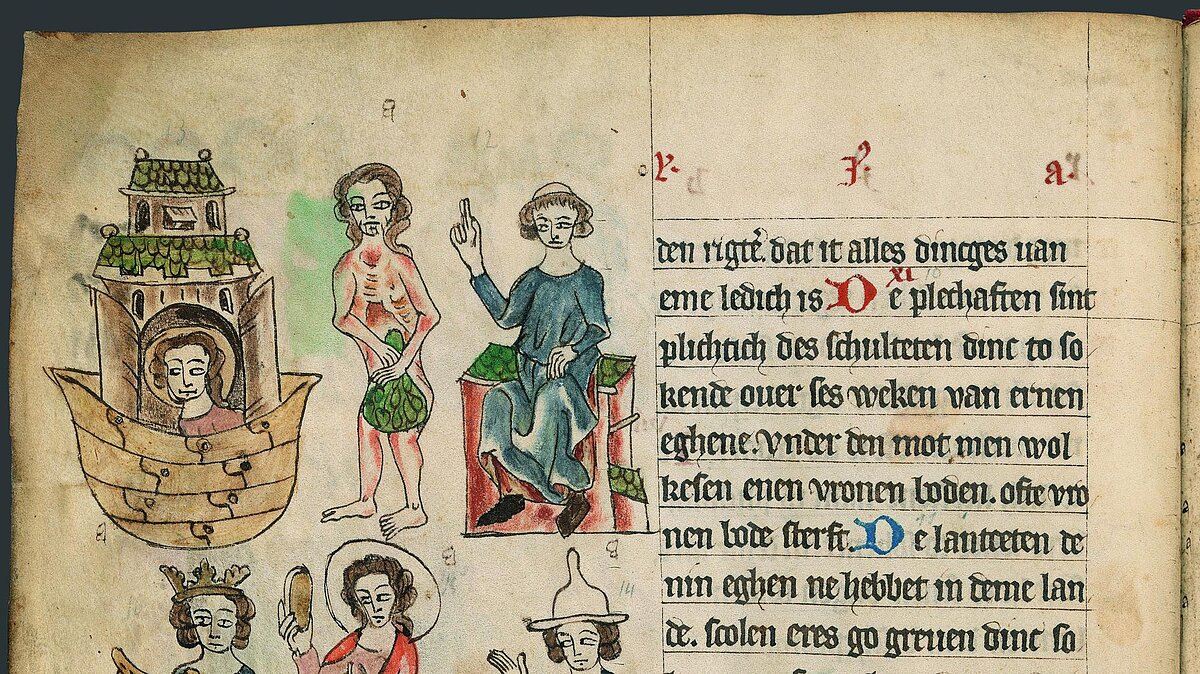 den rigte͛. dat it alles dincges uan
XI
eme ledich is De plechaften sint
plichtich des schulteten dinc to so
kende ouer ses weken van ernen
eghene. vnder den mot men wol
kesen enen vronen boden. ofte vro
nen bode sterft. De lantceten de
nin eghen ne hebbet in deme lan
de. scolen eres go greuen dinc so